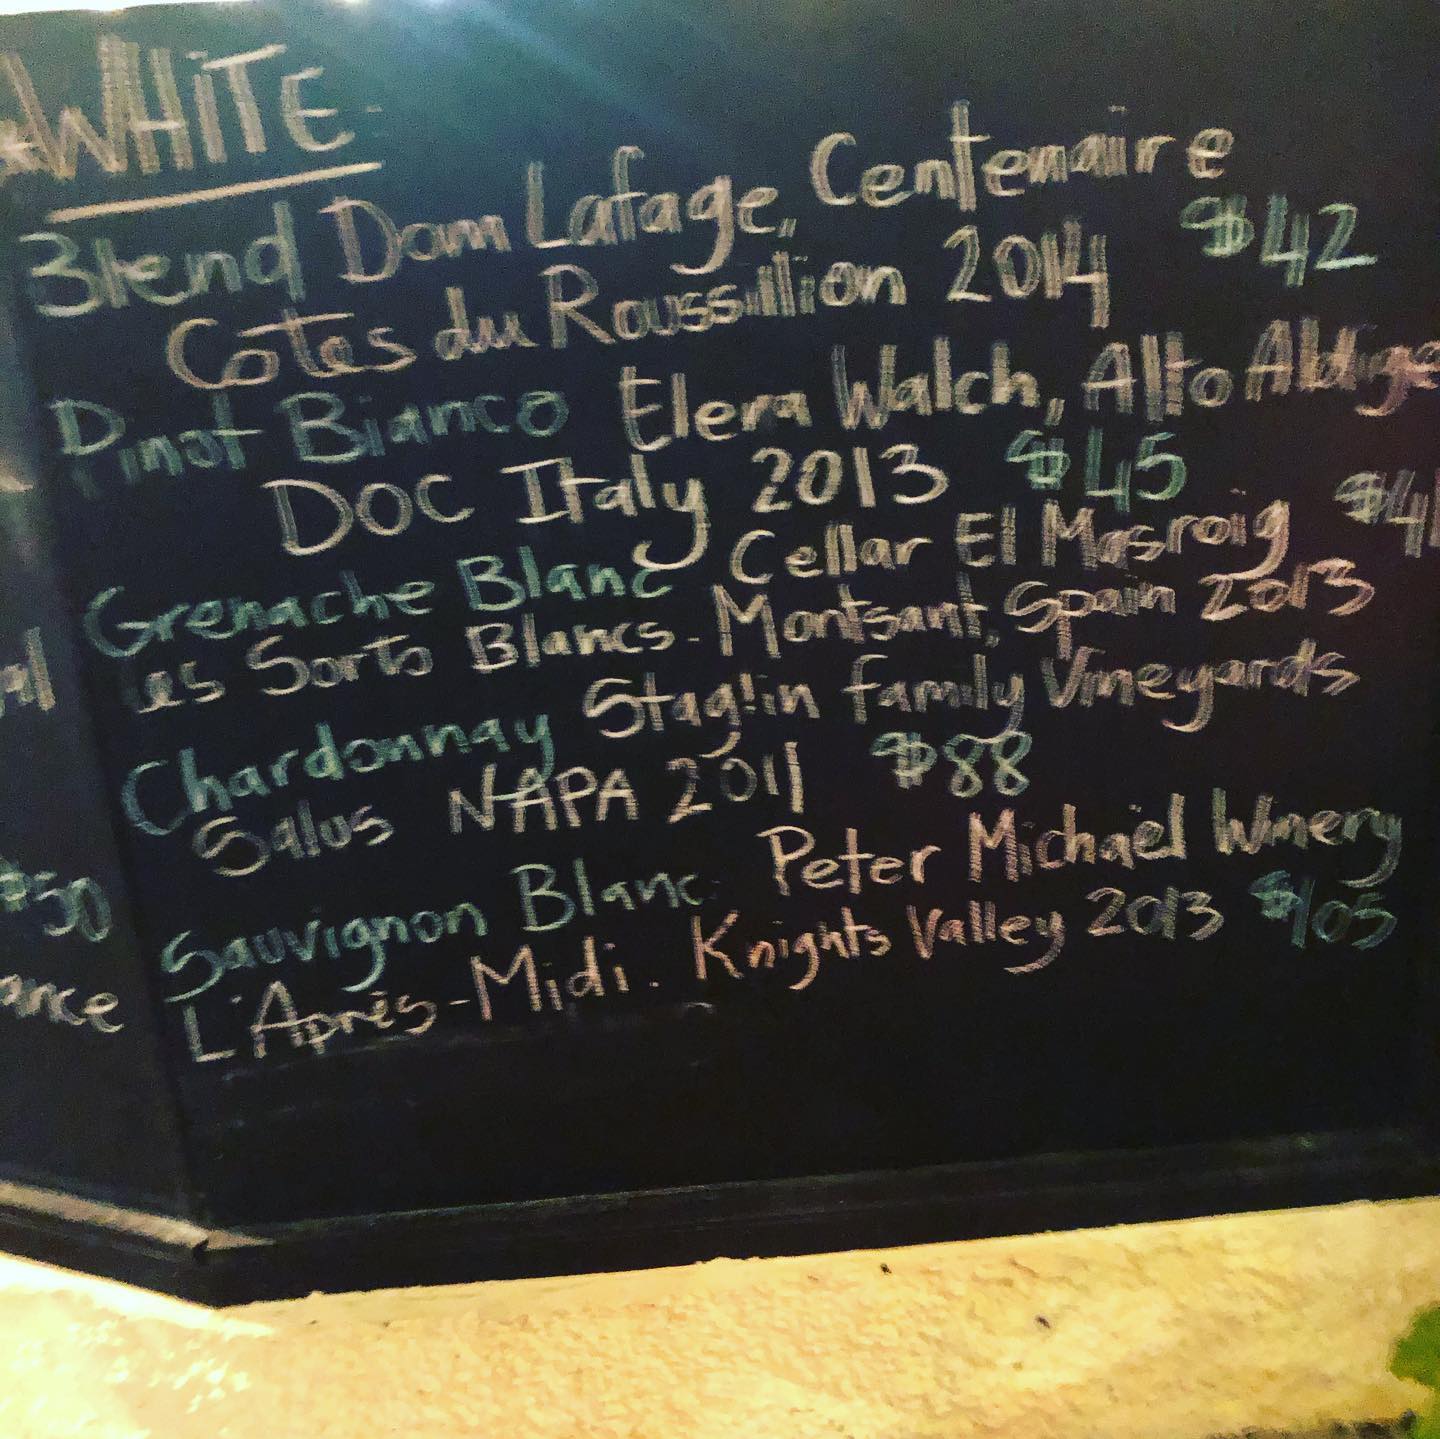 WHiTE
Blend Dom Lafage, Centenaire
Côtes du Roussillion 2014 $42
Pinot Bianco Elena Walch, Alto Adige
DOC Italy 2013 $45
Grenache Blanc Cellar El Masroig
les Sorts Blancs - Montsant, Spain 2013
Chardonnay Staglin family Vineyards
Salus NAPA 2011 $88
Sauvignon Blanc Peter Michael Winery
L'Après-Midi. Knights Valley 2013 $105
$50